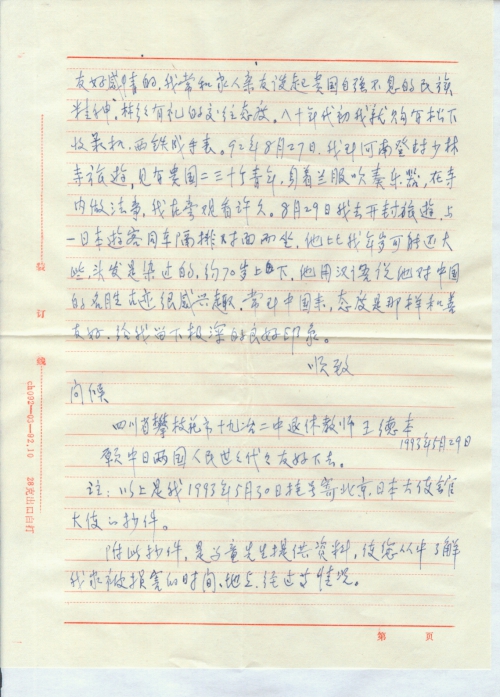 友好感情的,我常和家人亲友谈起贵国自强不息的民族
精神,彬彬有礼的交往态度。八十年代初我就购有松下
收录机,西铁城手表。92年8月27日,我到河南登封少林
寺旅遊,见有贵国二三十个青年,身着兰服吹奏乐器,在寺
内做法事,我在旁观看许久。8月29日我去开封旅遊,与
一日本遊客同车隔排对面而坐,他比我年岁可能还大
些,头发是染过的,约70岁上下,他用汉语说他对中国
的名胜古迹很感兴趣,常到中国来,态度是那样和善
友好,给我留下极深的良好印象。
顺致
问候
四川省攀枝花市十九冶二中退休教师 王德
1993年5月29日
愿中日两国人民世世代代友好下去。
注:以上是我1993年5月30日挂号寄北京,日本大使馆
大使的抄件。
附此抄件,是为童先生提供资料,使您从中了解
我家被损害的时间、地点、经过等情况。
装 订 线
ch092—02—92.10
28克出口白打
第 页